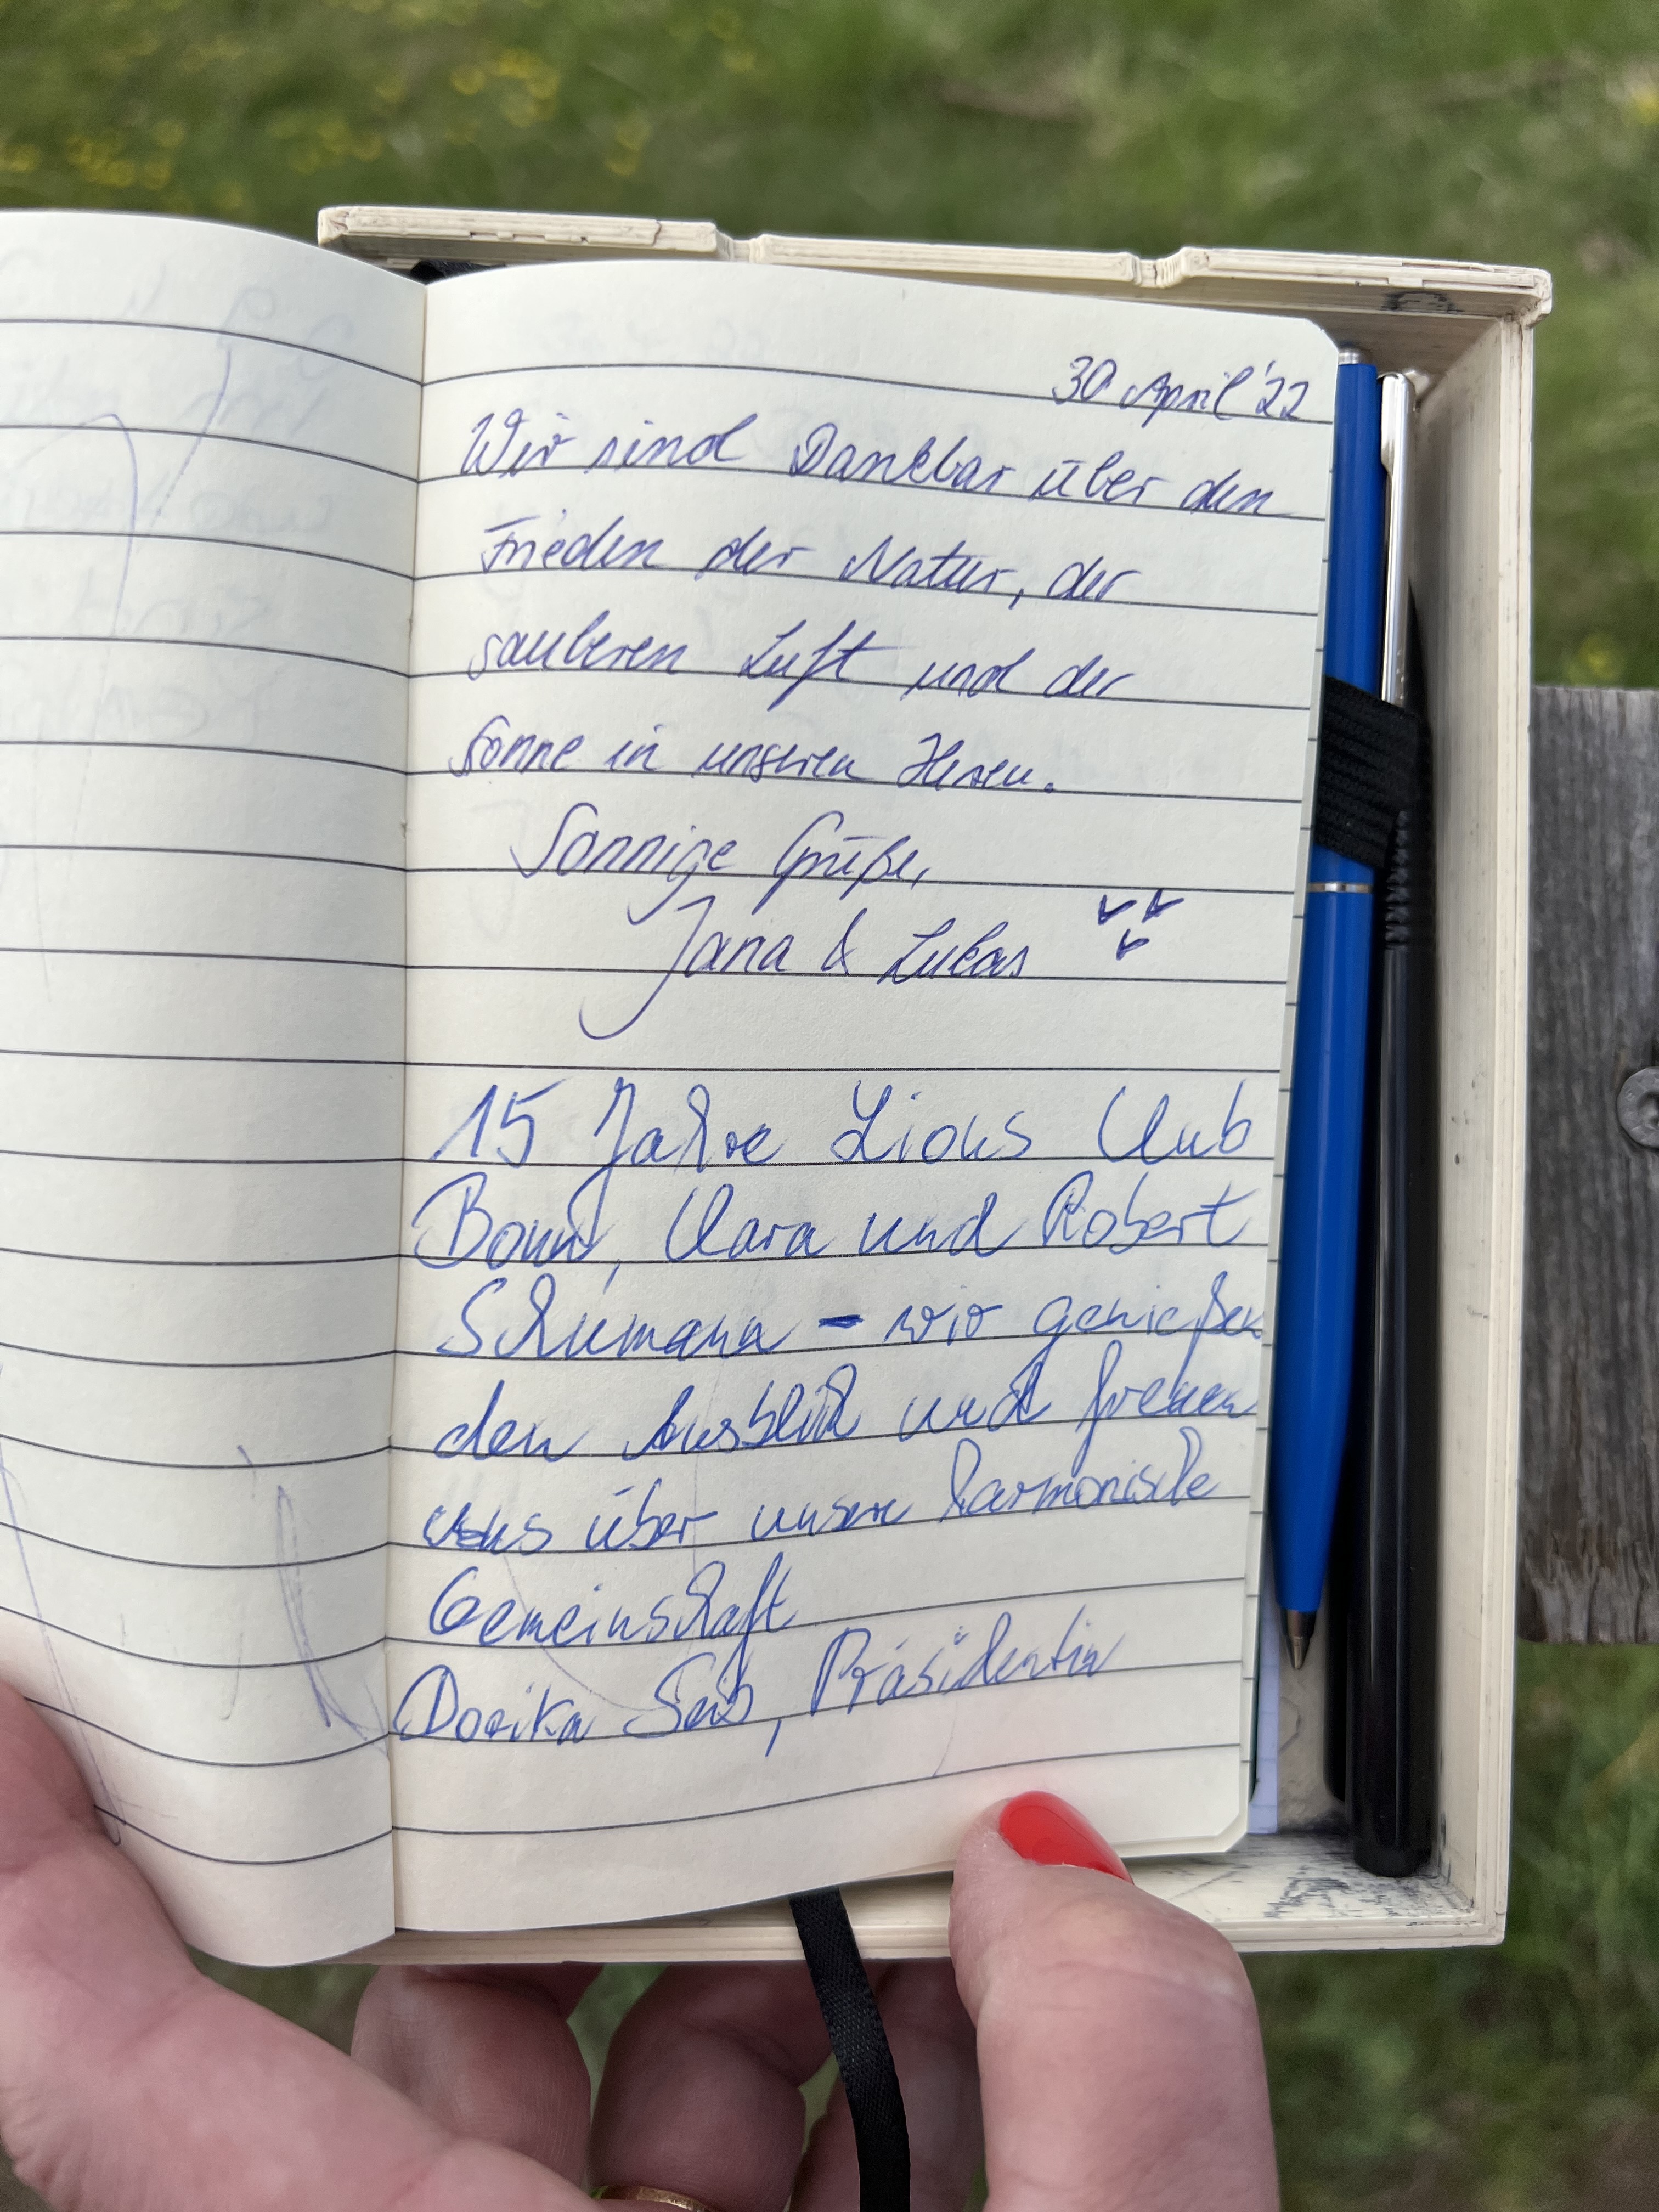 30 April '22
Wir sind Dankbar über den
Frieden der Natur, der
sauberen Luft und der
Sonne in unseren Herzen.
Sonnige Grüße,
Jana & Lukas
15 Jahre Lions Club
Bonn, Clara und Robert
Schumann - wir genießen
den Ausblick und freuen
uns über unsere harmonische
Gemeinschaft
Dorika, Präsidentin